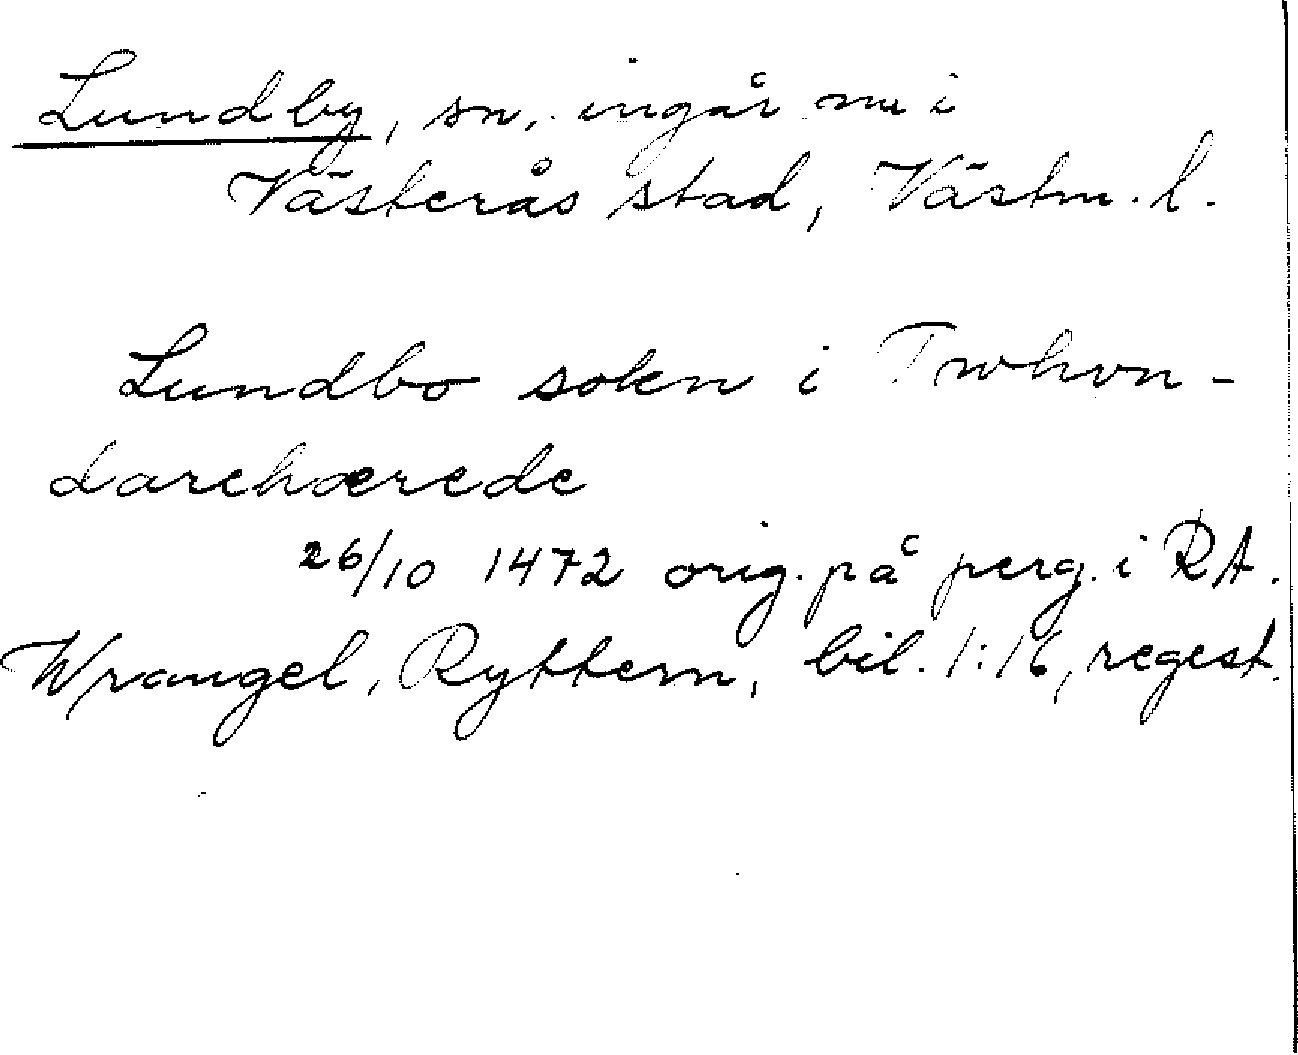 Lundby, sn, ingår nu i
Västerås stad, Västm. l.
Lundbo sokn i Twhvn-
darehærede
26/10 1472 orig. på perg. i RA.
Wrangel, Ryttern, bil. 1:16, regest.